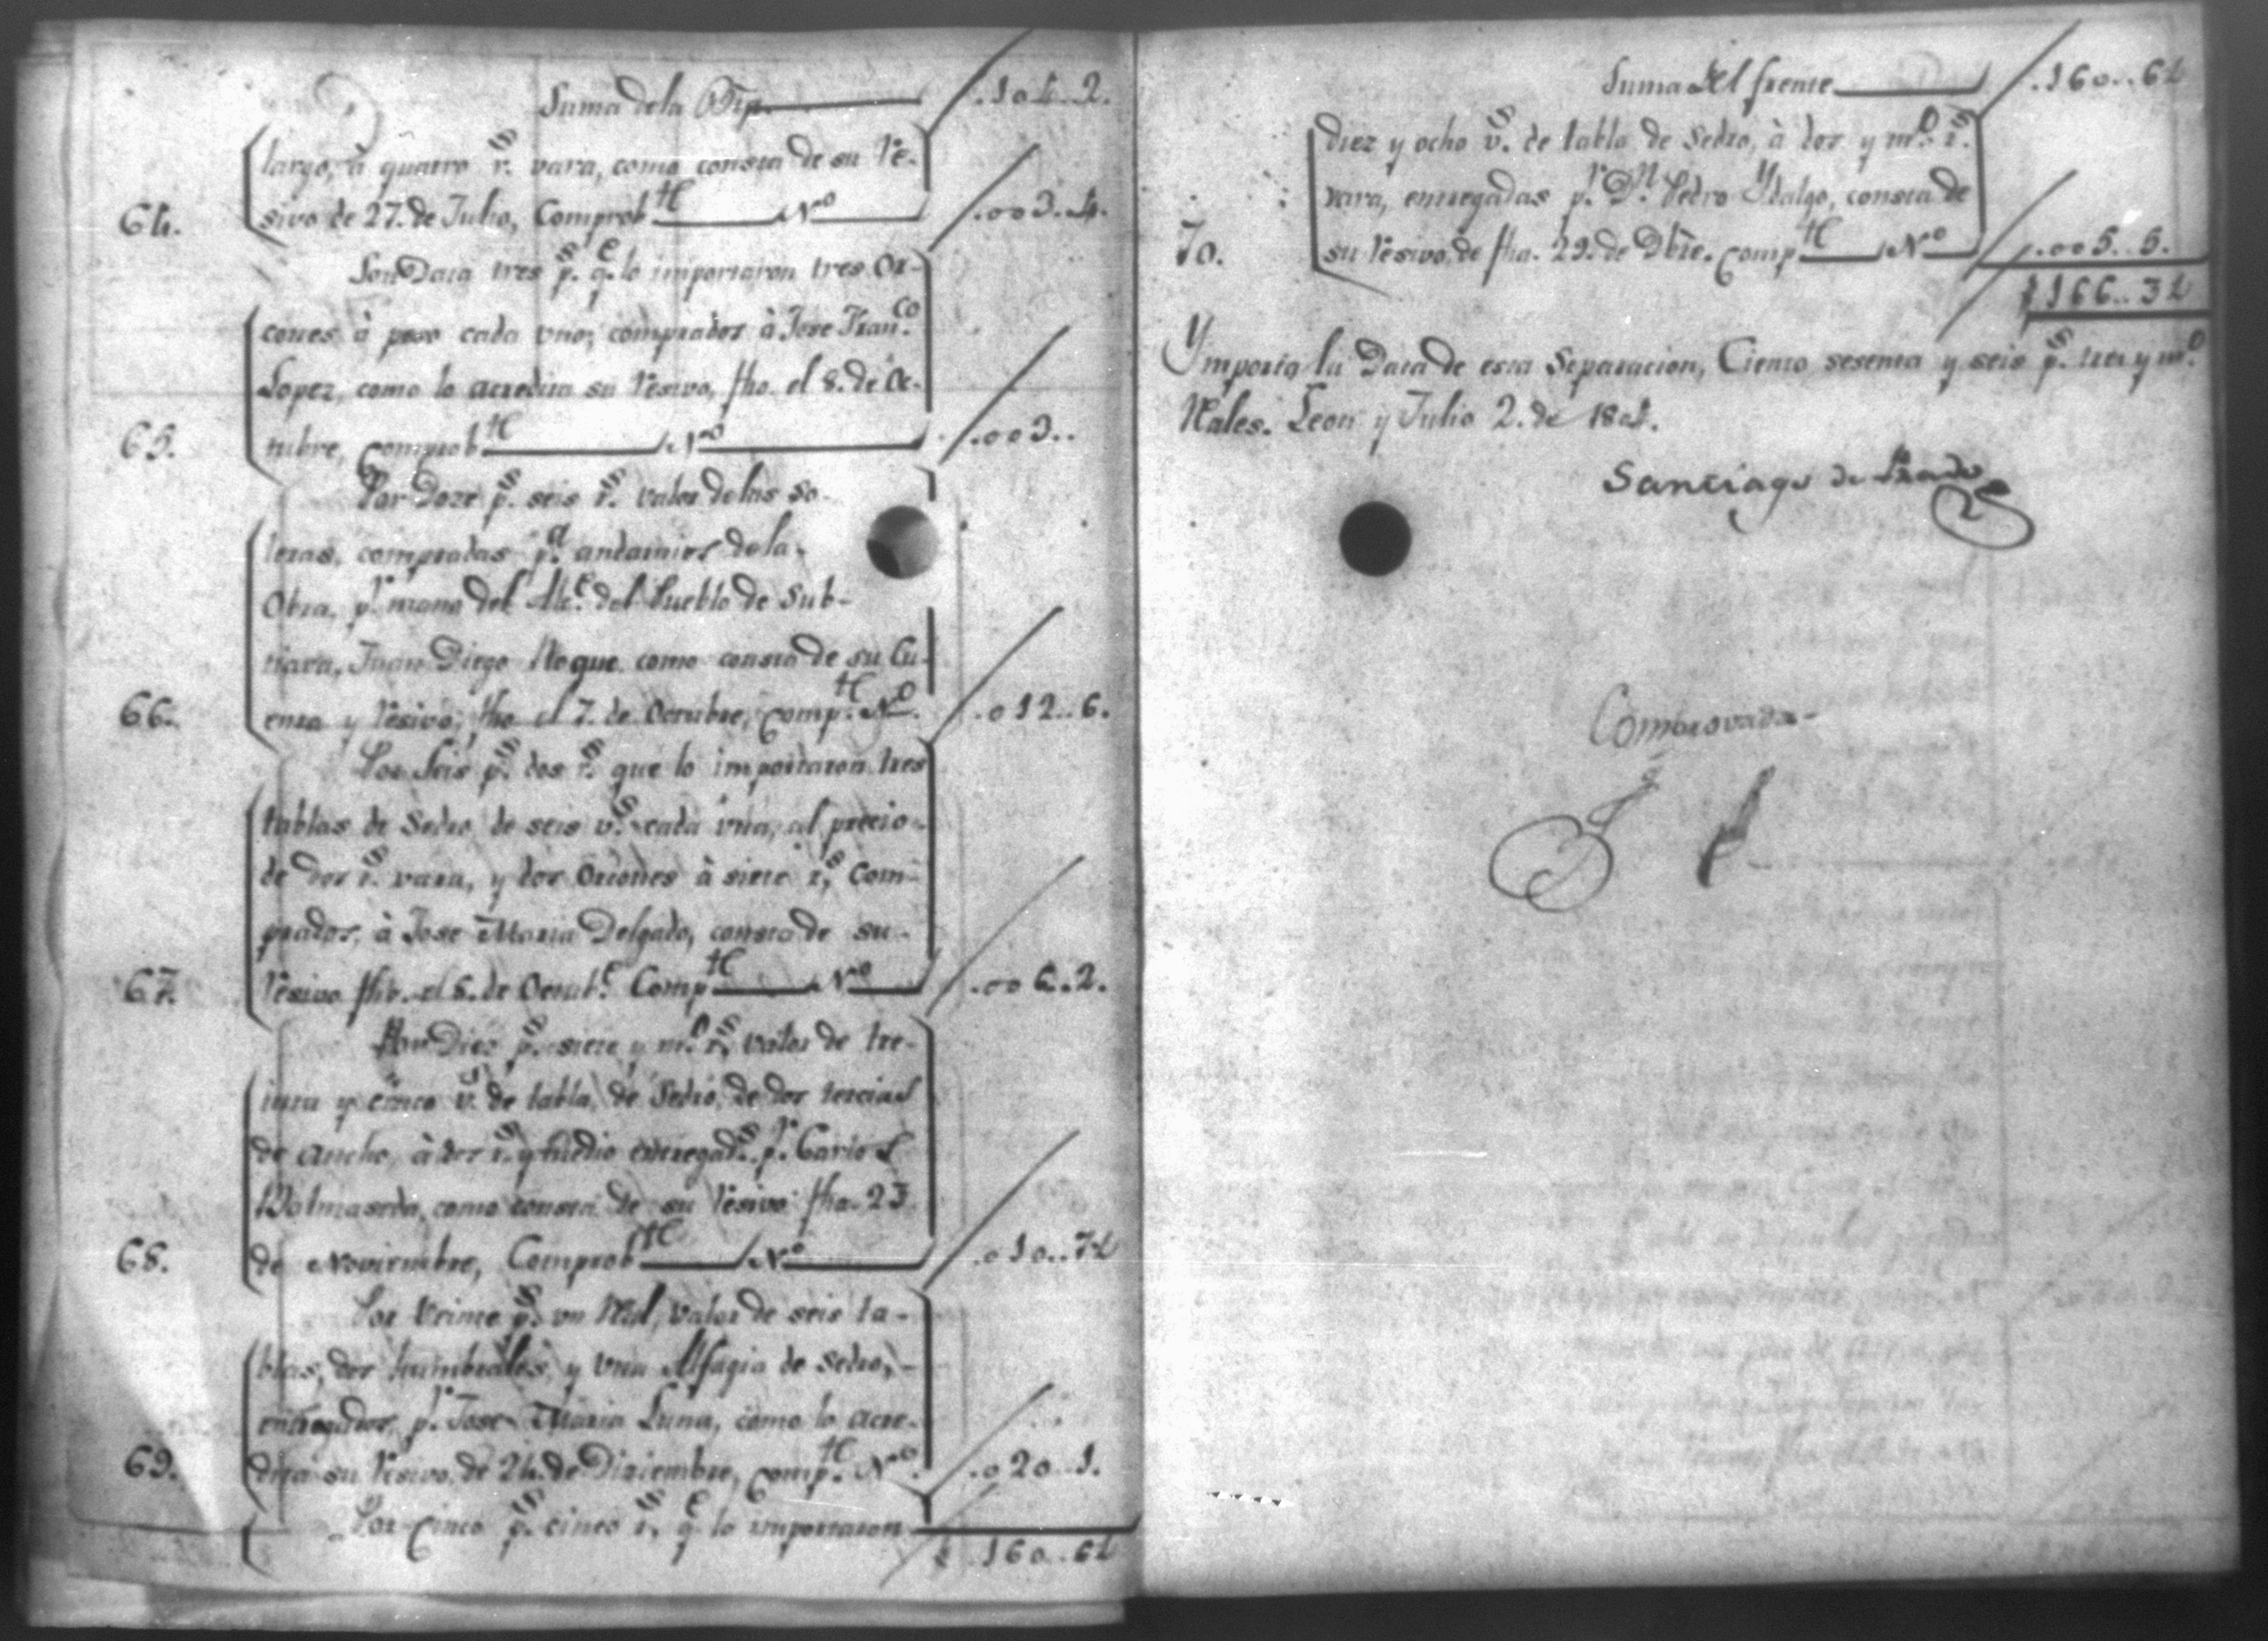 Suma dela Bta. .104..2.
largo, à quatro r.s vara, como consta de su Re-
64. sivo de 27. de Julio, Comprob.te N.o .003..4.
Son Data tres p.s q.e lo importaron tres Or-
cones à peso cada vno, comprados à Jose Fran.co
Lopez, como lo acredita su Resivo, fho. el 8. de Oc-
65. tubre, Comprob.te N.o .003..
Por Doze p.s seis r.s valor de las so-
leras, compradas p.a andamios dela
Obra, p.r mano del Alc.e del Pueblo de Sub-
tiava, Juan Diego Roque como consta de su Cu-
66. enta y Resivo, fho el 7. de Octubre, Comp.te N.o .012..6.
Por Seis p.s dos r.s que lo importaron tres
tablas de Sedro de seis v.s cada vna, al precio
de dos r.s vara, y dos Orcones à siete r.s Com-
prados, à Jose Maria Delgado, consta de su
67. Resivo fho. el 8. de Octub.e Comp.te N.o .006..2.
Por Diez p.s siete y m.o r.s valor de tre-
inta y cinco v.s de tabla, de Sedro, de dos tercias
de ancho, à dos r.s y medio entregad.s p.r Carlos
Balmaseda, como consta de su Resivo fha. 23
68. de Noviembre, Comprob.te N.o .010..7½
Por Veinte p.s vn Real, valor de seis ta-
blas, dos humbrales, y vna Alfagia de Sedro,
entregados, p.r Jose Maria Luna, como lo acre-
69. dita su Resivo, de 24. de Diziembre, Comp.te N.o .020..1.
Por Cinco p.s cinco r.s q.e lo importaron
160..6½
Suma del frente .160..6½
diez y ocho v.s de tabla de Sedro, à dos y m.o r.s
vara, entregadas p.r D.n Pedro Ydalgo, consta de
70. su Resivo, de fha. 29. de Dbre. Comp.te N.o .005..5.
166..3½
Ymporta la Data de esta Separacion, Ciento sesenta y seis p.s tres y m.o
Reales. Leon y Julio 2. de 1804.
Santiago de Prado
Comprovada